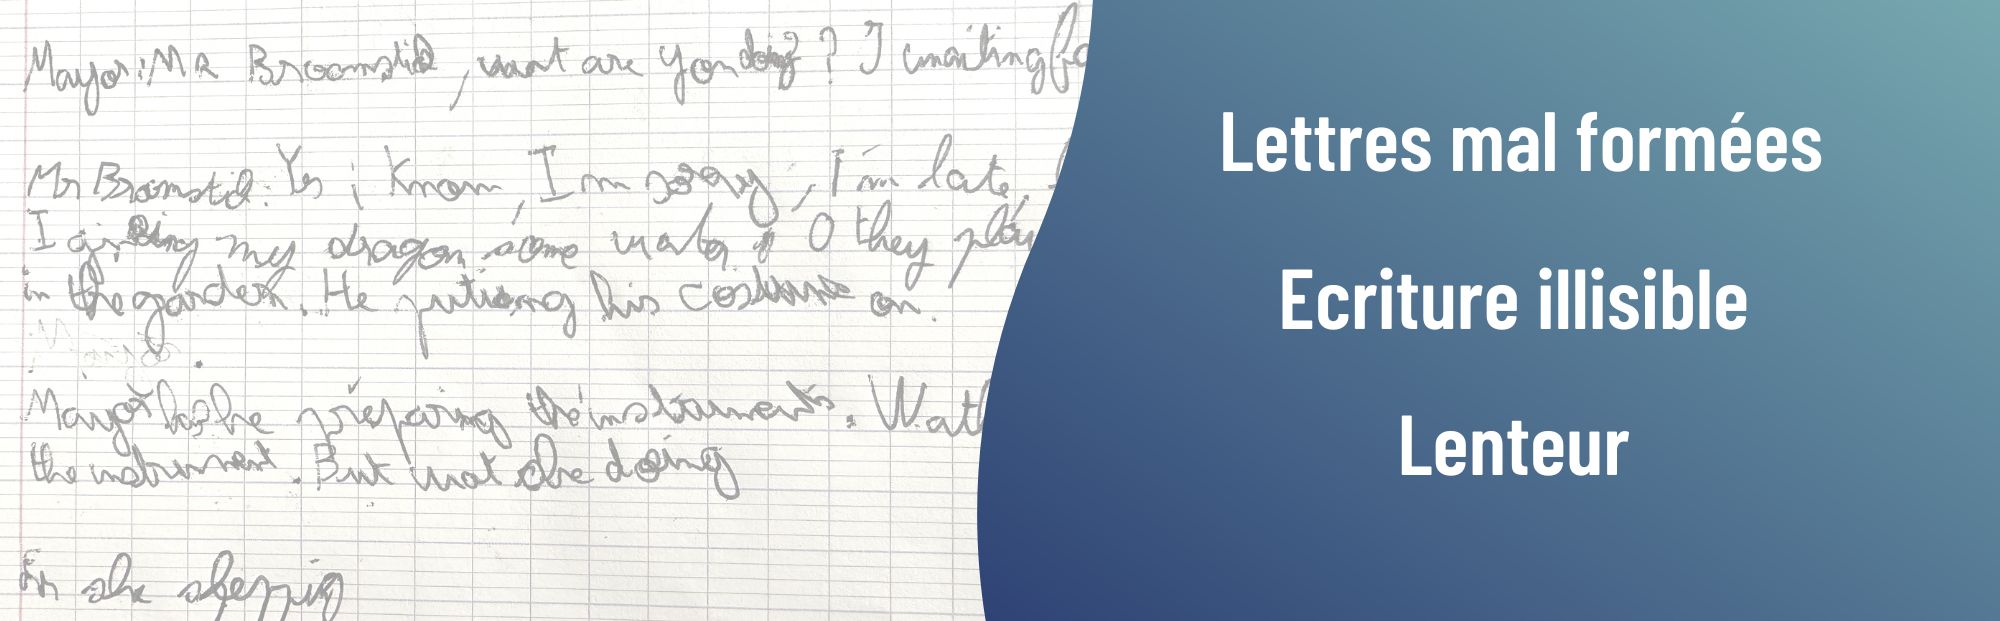 Mayor: MR Broomstid, want are you doing? I waiting fo
Mr Bromstid: Yes i Know, I m sorry, I'm late.
I giving my dragon some water O they play
in the garden. He puting his costume on.
Mayor hehe préparing the instruments. Wat
the instrument. But wat she doing
she sleppig
Lettres mal formées
Ecriture illisible
Lenteur